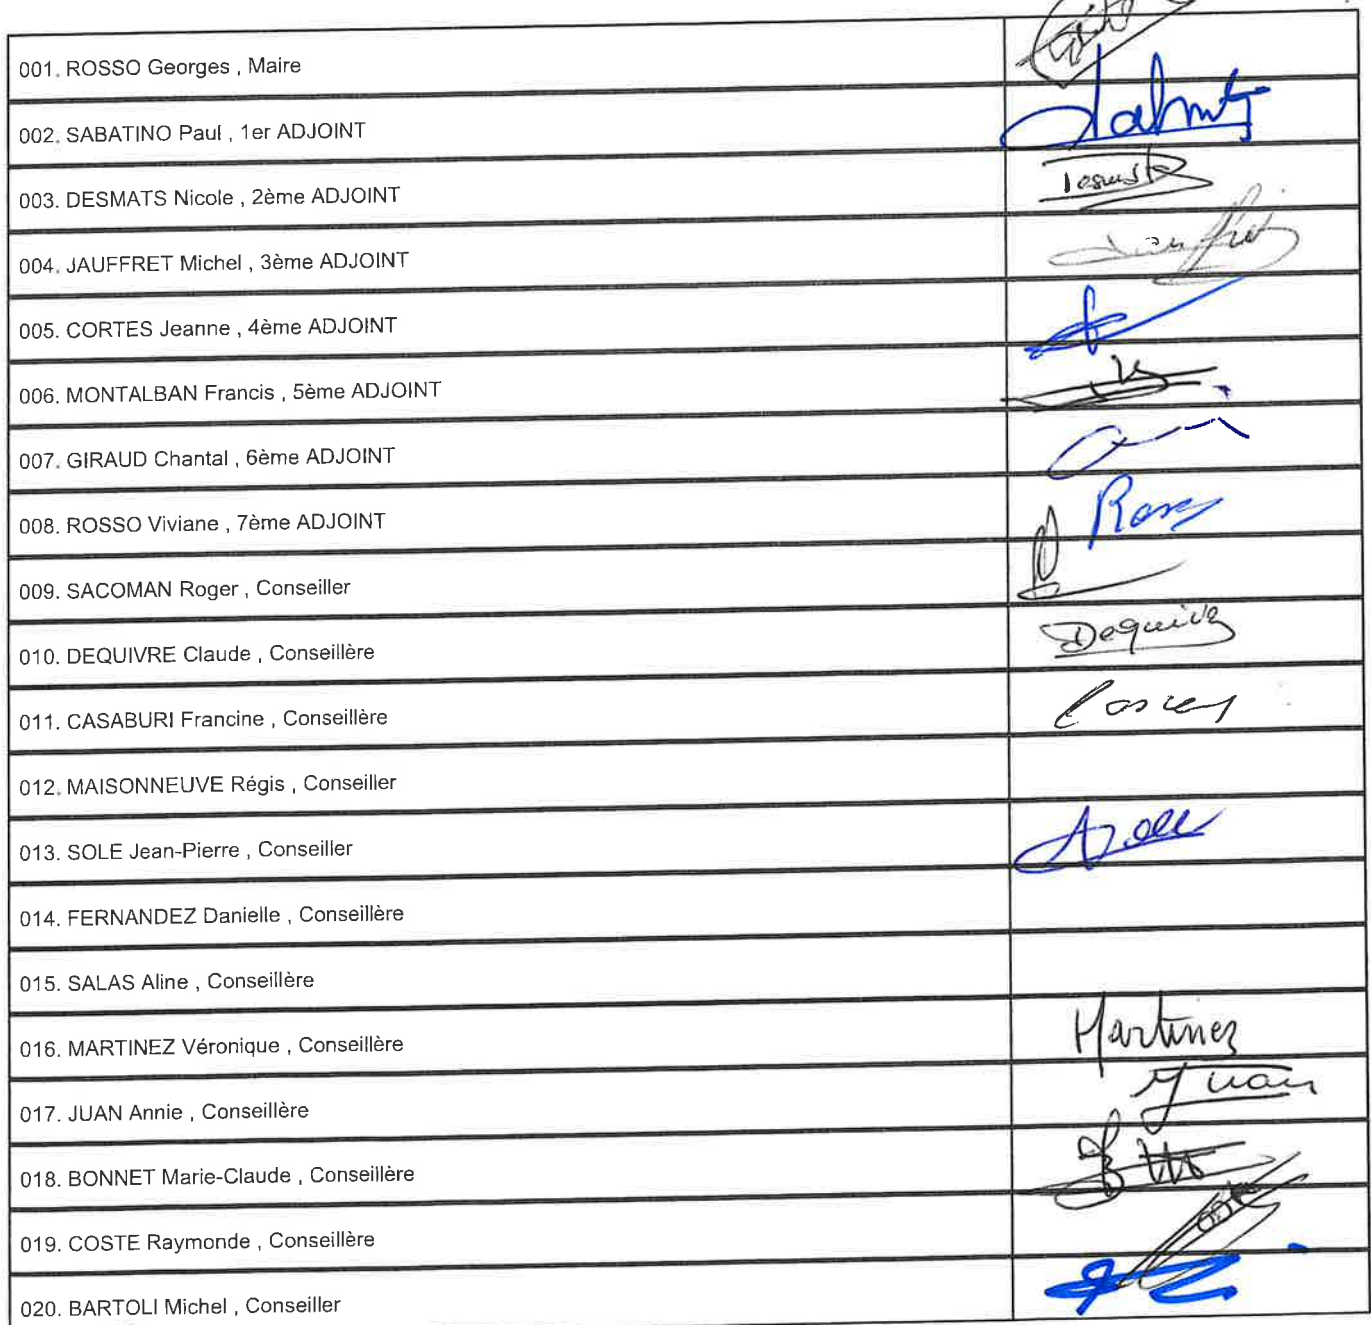 001. ROSSO Georges , Maire
002. SABATINO Paul , 1er ADJOINT
003. DESMATS Nicole , 2ème ADJOINT
004. JAUFFRET Michel , 3ème ADJOINT
005. CORTES Jeanne , 4ème ADJOINT
006. MONTALBAN Francis , 5ème ADJOINT
007. GIRAUD Chantal , 6ème ADJOINT
008. ROSSO Viviane , 7ème ADJOINT
009. SACOMAN Roger , Conseiller
010. DEQUIVRE Claude , Conseillère
011. CASABURI Francine , Conseillère
012. MAISONNEUVE Régis , Conseiller
013. SOLE Jean-Pierre , Conseiller
014. FERNANDEZ Danielle , Conseillère
015. SALAS Aline , Conseillère
016. MARTINEZ Véronique , Conseillère Martinez
017. JUAN Annie , Conseillère Juan
018. BONNET Marie-Claude , Conseillère
019. COSTE Raymonde , Conseillère
020. BARTOLI Michel , Conseiller